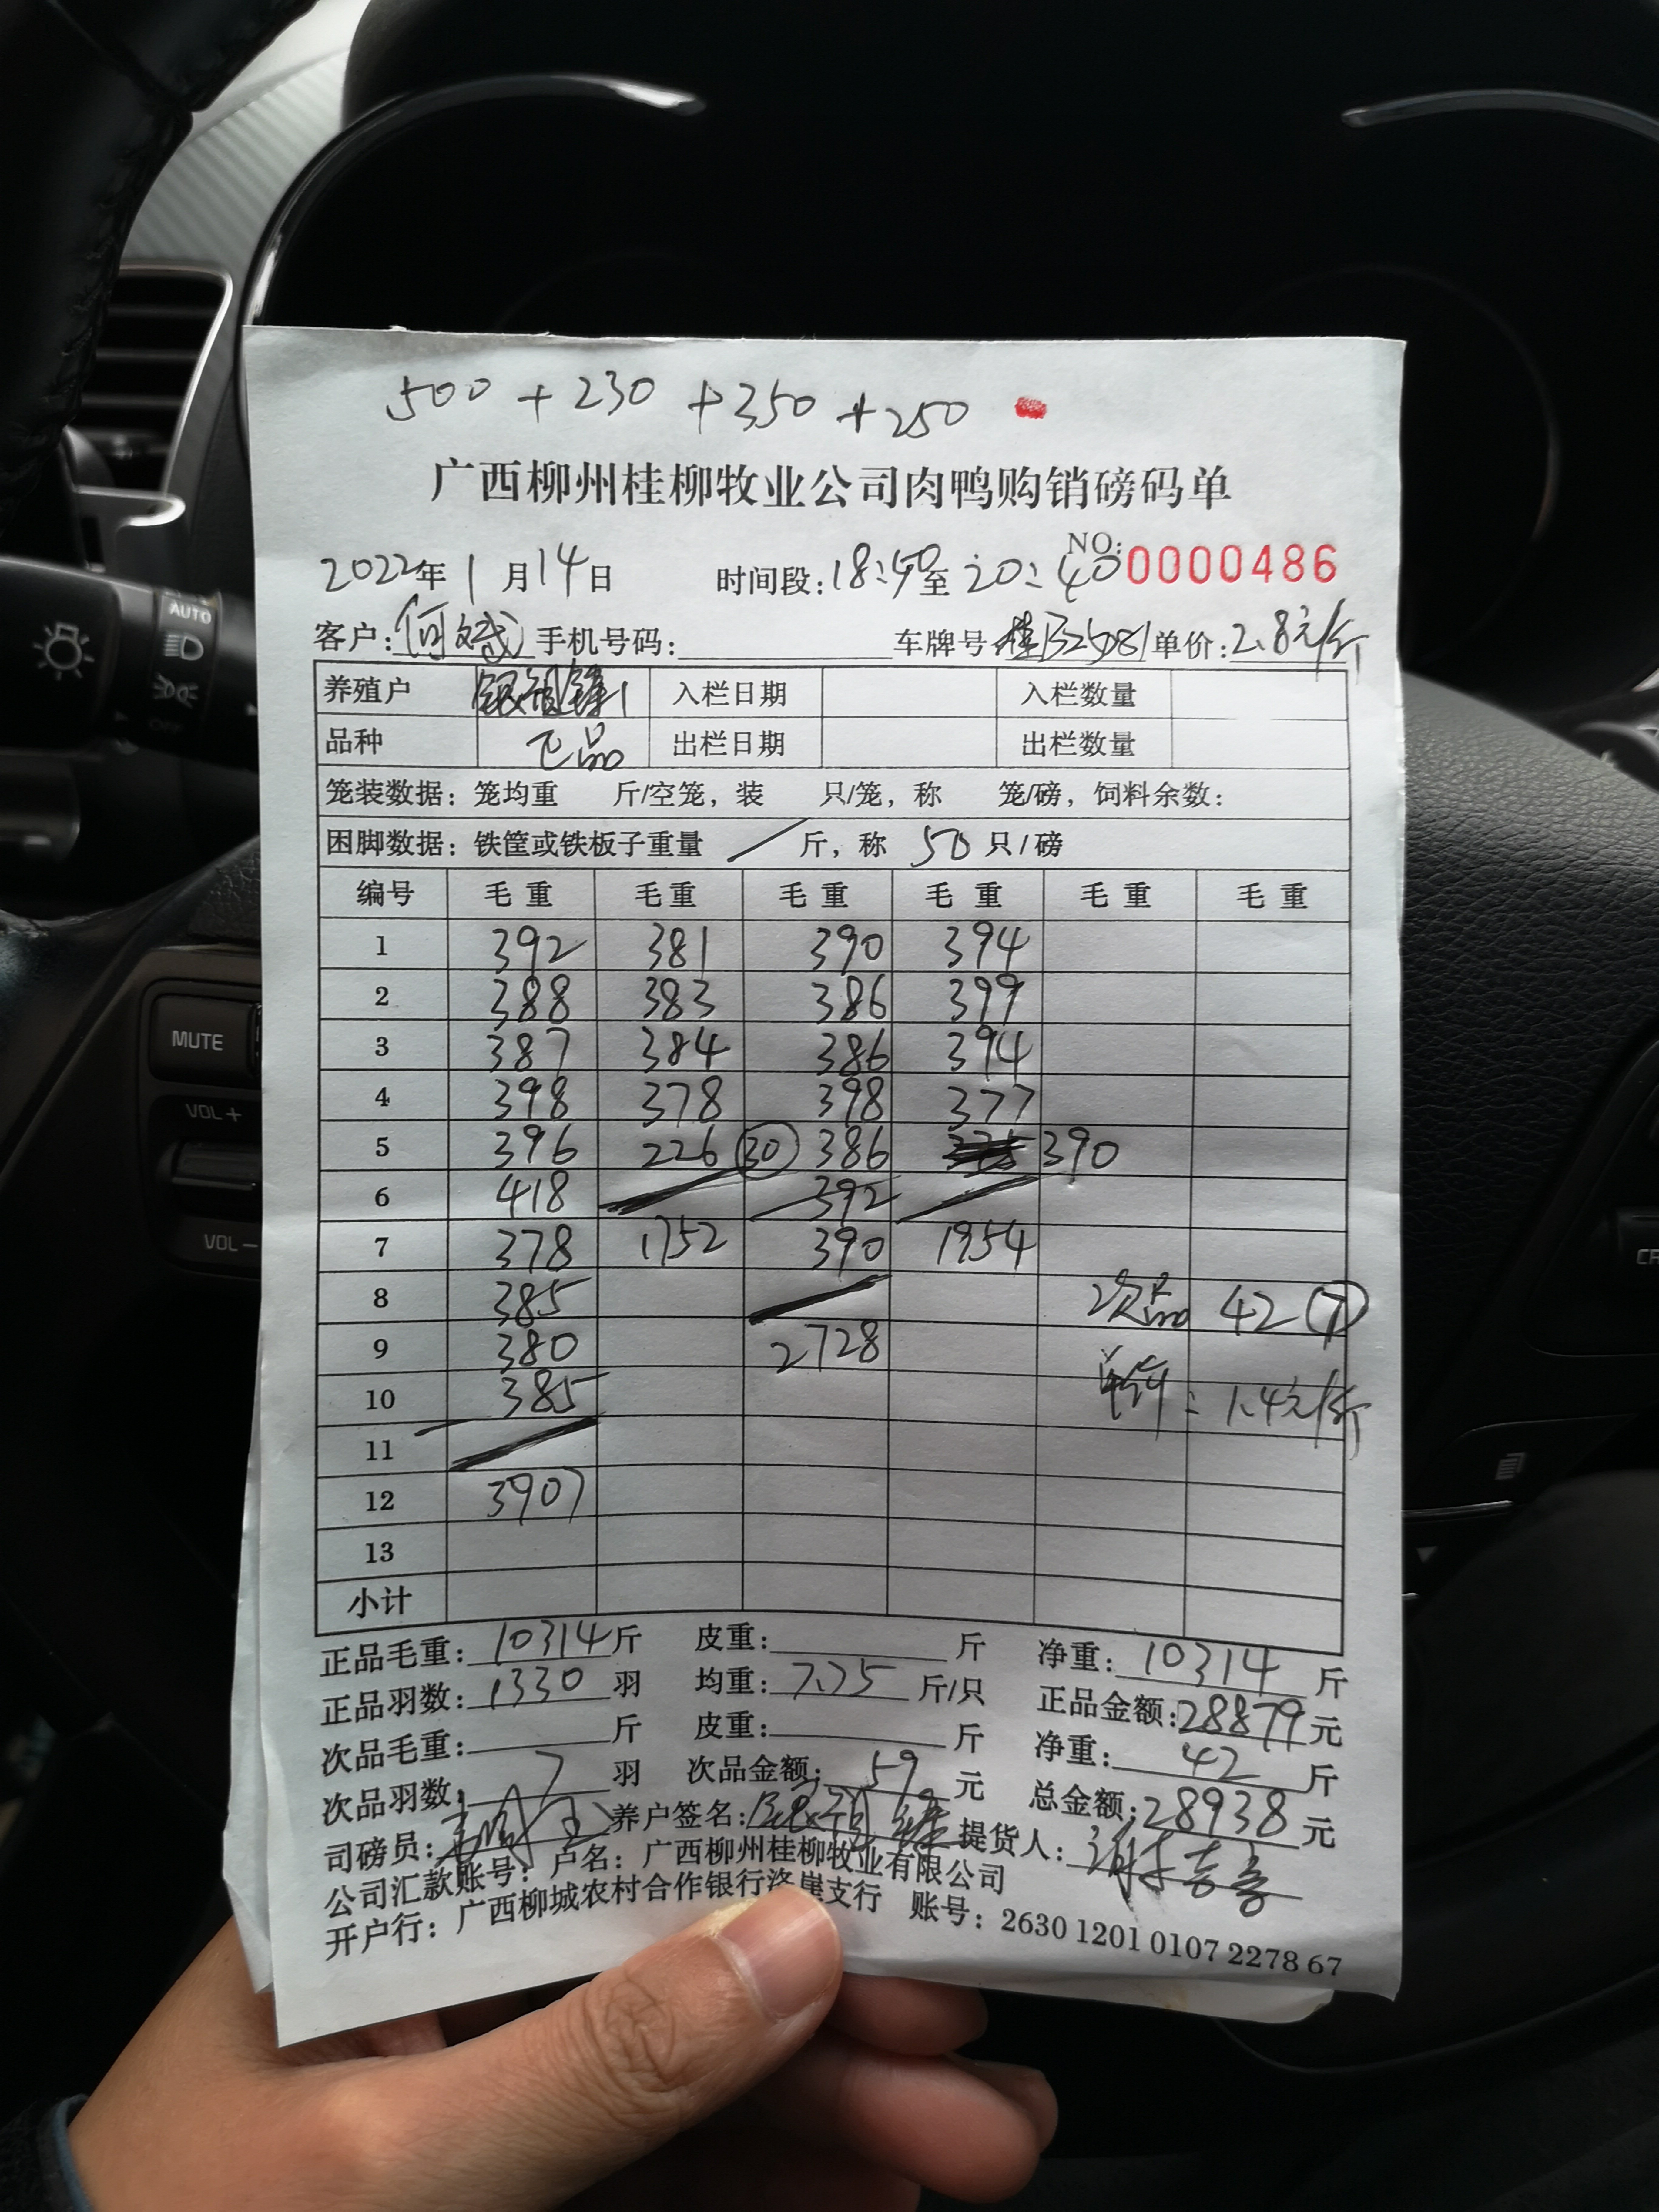 500 + 230 + 350 + 250
广西柳州桂柳牧业公司肉鸭购销磅码单
2022年 1 月 14 日 时间段: 18:40 至 20:40 NO: 0000486
客户: 何斌 手机号码: 车牌号 桂B25081 单价: 2.8元/斤
养殖户 入栏日期 入栏数量
品种 正品 出栏日期 出栏数量
笼装数据: 笼均重 斤/空笼, 装 只/笼, 称 笼/磅, 饲料余数:
困脚数据: 铁筐或铁板子重量 / 斤, 称 50 只/磅
编号 毛重 毛重 毛重 毛重 毛重 毛重
1 392 381 390 394
2 388 383 386 399
3 387 384 386 394
4 398 378 398 377
5 396 226 30 386 390
6 418 392
7 378 1752 390 1954
8 385 次品 42 7
9 380 2728
10 385 单价: 1.4元/斤
11
12 3907
13
小计
正品毛重: 10314 斤 皮重: 斤 净重: 10314 斤
正品羽数: 1330 羽 均重: 7.75 斤/只 正品金额: 28879 元
次品毛重: 斤 皮重: 斤 净重: 42 斤
次品羽数: 7 羽 次品金额: 59 元 总金额: 28938 元
司磅员: 养户签名: 提货人:
公司汇款账号: 户名: 广西柳州桂柳牧业有限公司
开户行: 广西柳城农村合作银行洛崖支行 账号: 2630 1201 0107 2278 67
AUTO
OFF
MUTE
VOL +
VOL −